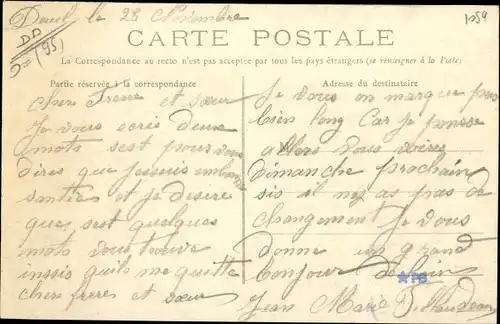 Deuil le 28 Novembre
1059
DD
(95)
CARTE POSTALE
La Correspondance au recto n'est pas acceptée par tous les pays étrangers (se renseigner à la Poste)
Partie réservée à la correspondance
Adresse du destinataire
chers Frere et sœur
Je vous ecris deux
mots sest pour vous
dires que jesuis en bonn
santées et je desire
que sest quelques
mots vous trouve
inssis quils me quitte
chers freres et sœur
Je vous en marque pas
bien long Car je pense
allers vous voires
Dimanche prochain
sis il ny as pas de
changement Je vous
donne un grand
bonjour de loin
★PB
Jean Marie